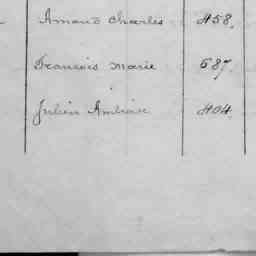 Amand Charles 458.
François Marie 587.
Julien Ambroise 404.